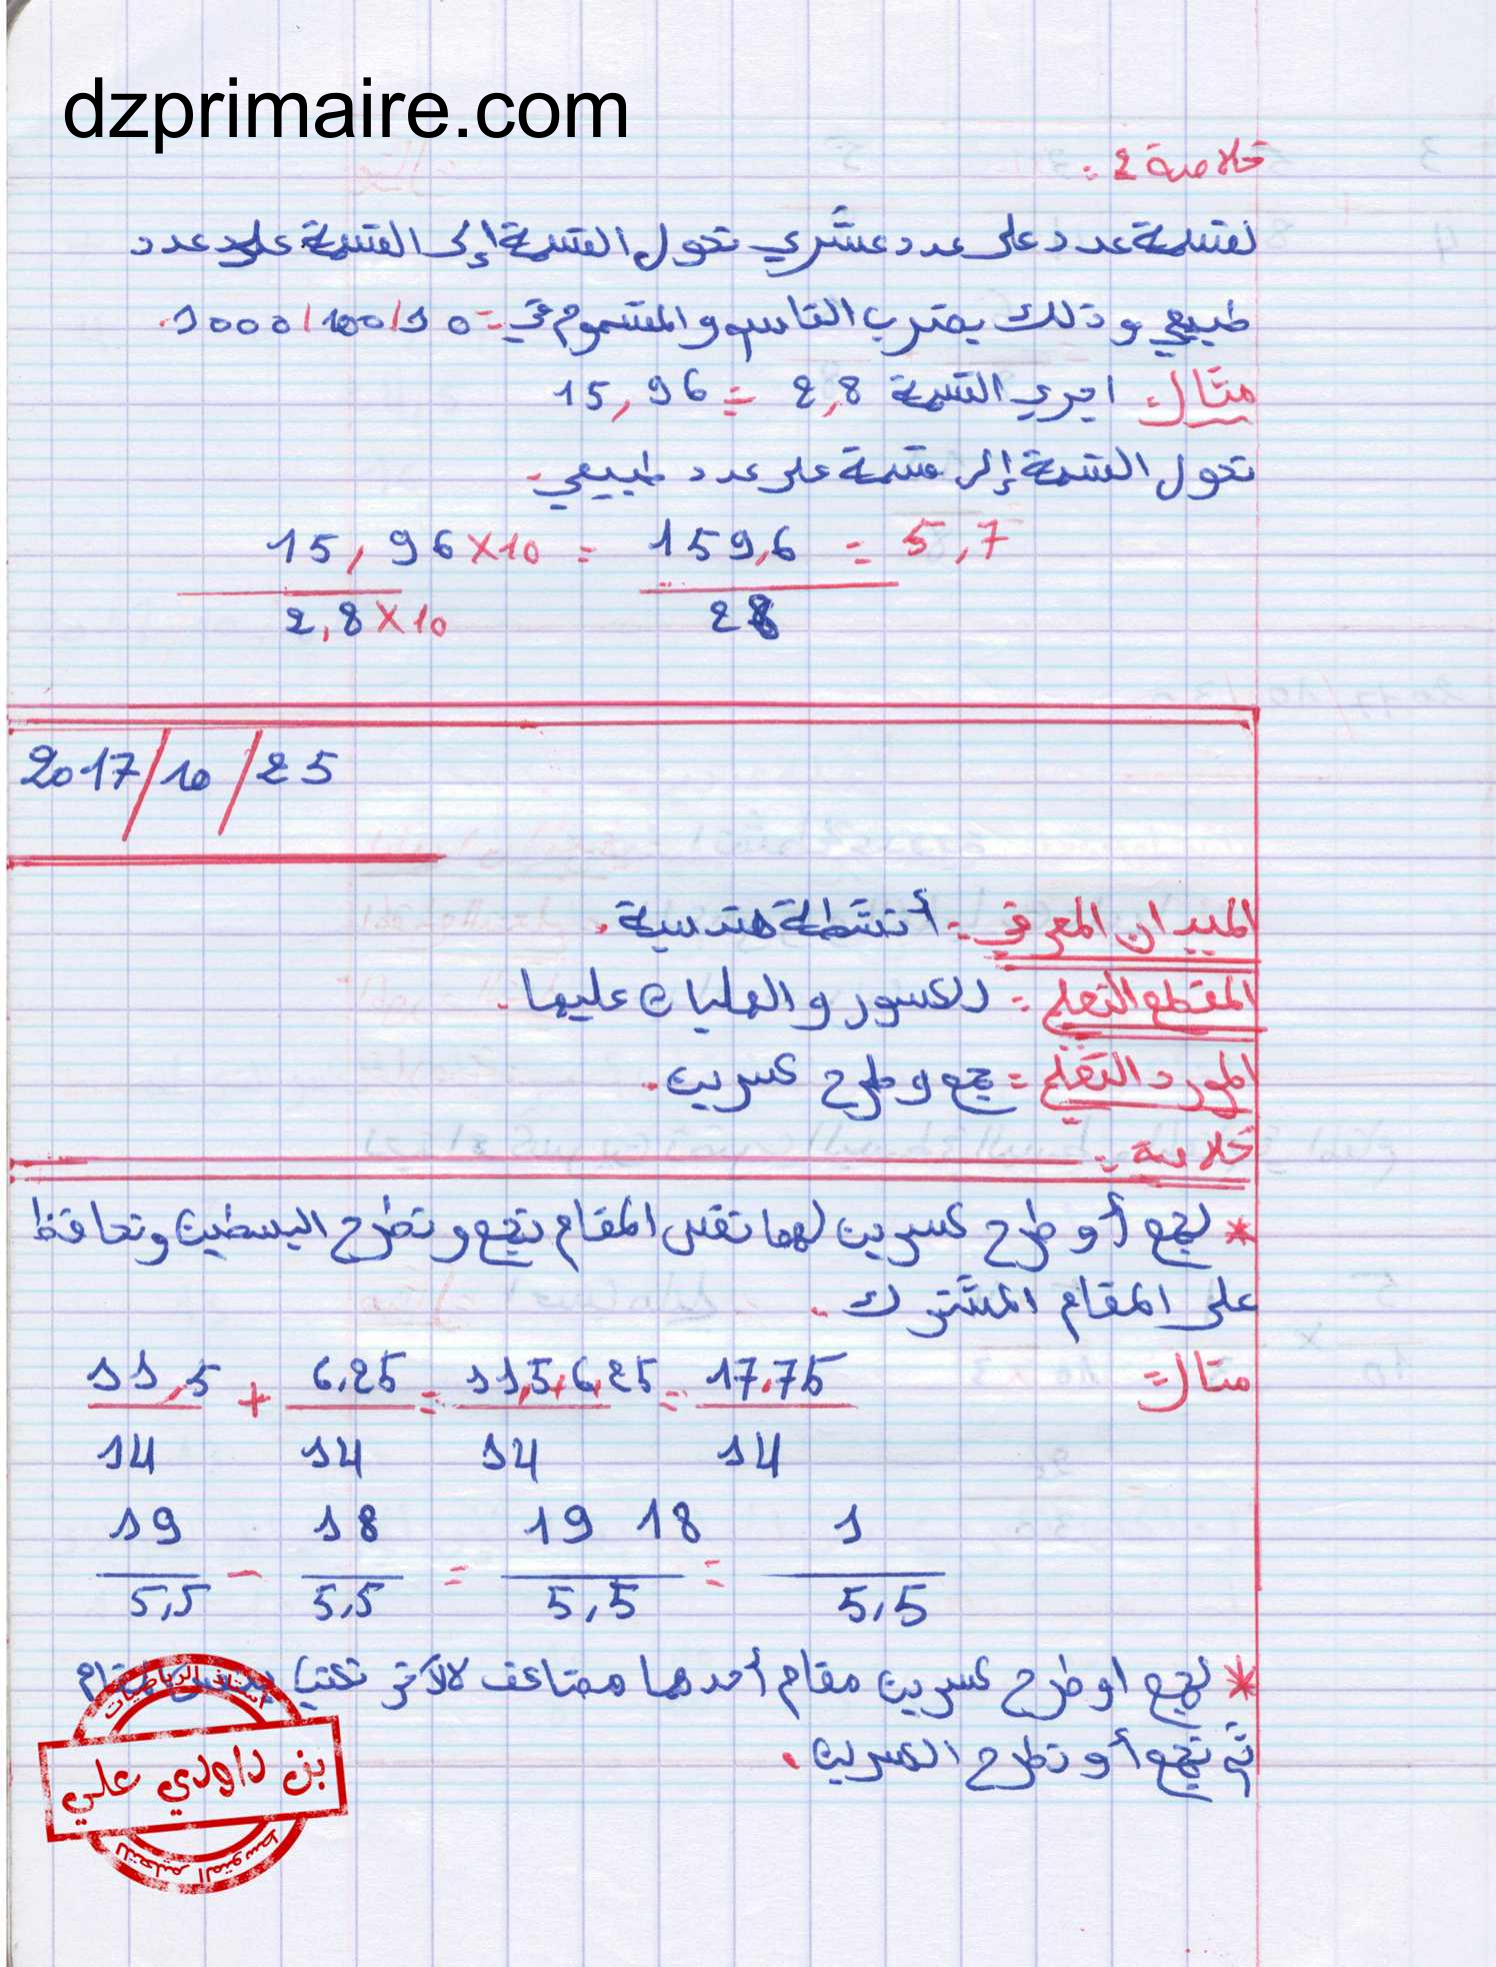 dzprimaire.com
خلاصة 2:
لقسمة عدد على عدد عشري تحول القسمة إلى القسمة على عدد
طبيعي و ذلك بضرب القاسم و المقسوم في: 10/100/1000.
مثال: اجري القسمة 2,8 = 15,96
تحول القسمة إلى قسمة على عدد طبيعي.
15,96×10 = 159,6 = 5,7
2,8×10 28
2017/10/25
الميدان المعرفي: أنشطة هندسية.
المقطع التعلمي: الكسور و العمليات عليها.
المورد التعلمي: جمع و طرح كسرين.
خلاصة:
* لجمع أو طرح كسرين لهما نفس المقام نجمع و نطرح البسطين و نحافظ
على المقام المشترك.
مثال:
11,5 + 6,25 = 11,5+6,25 = 17,75
14 14 14 14
19 - 18 = 19 18 = 1
5,5 5,5 5,5 5,5
* لجمع او طرح كسرين مقام أحدهما مضاعف للآخر نكتبها بنفس المقام
ثم نجمع أو نطرح الكسرين.
أستاذ الرياضيات
بن داودي علي
للتعليم المتوسط